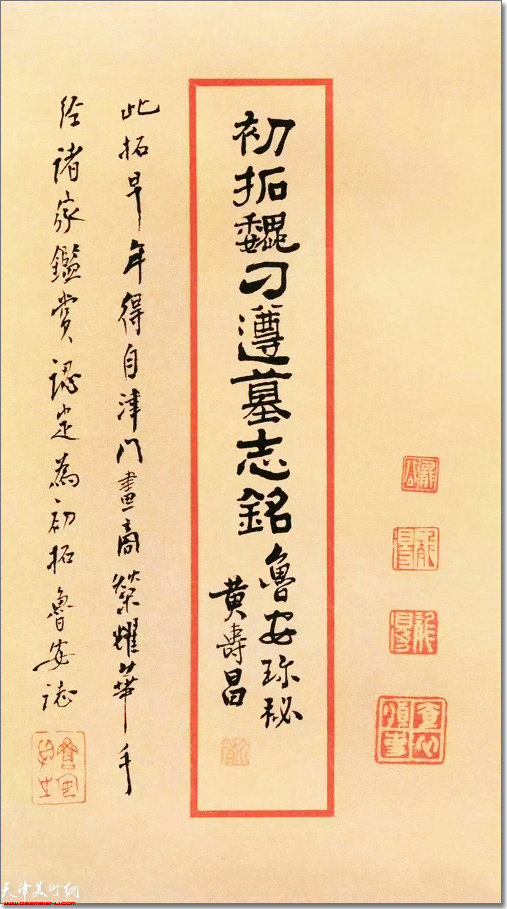 初拓魏刁遵墓志銘
魯安珎秘
黄壽昌
此拓早年得自津门畫商榮耀華手
经诸家鑑赏认定為初拓魯安志
天津美術網